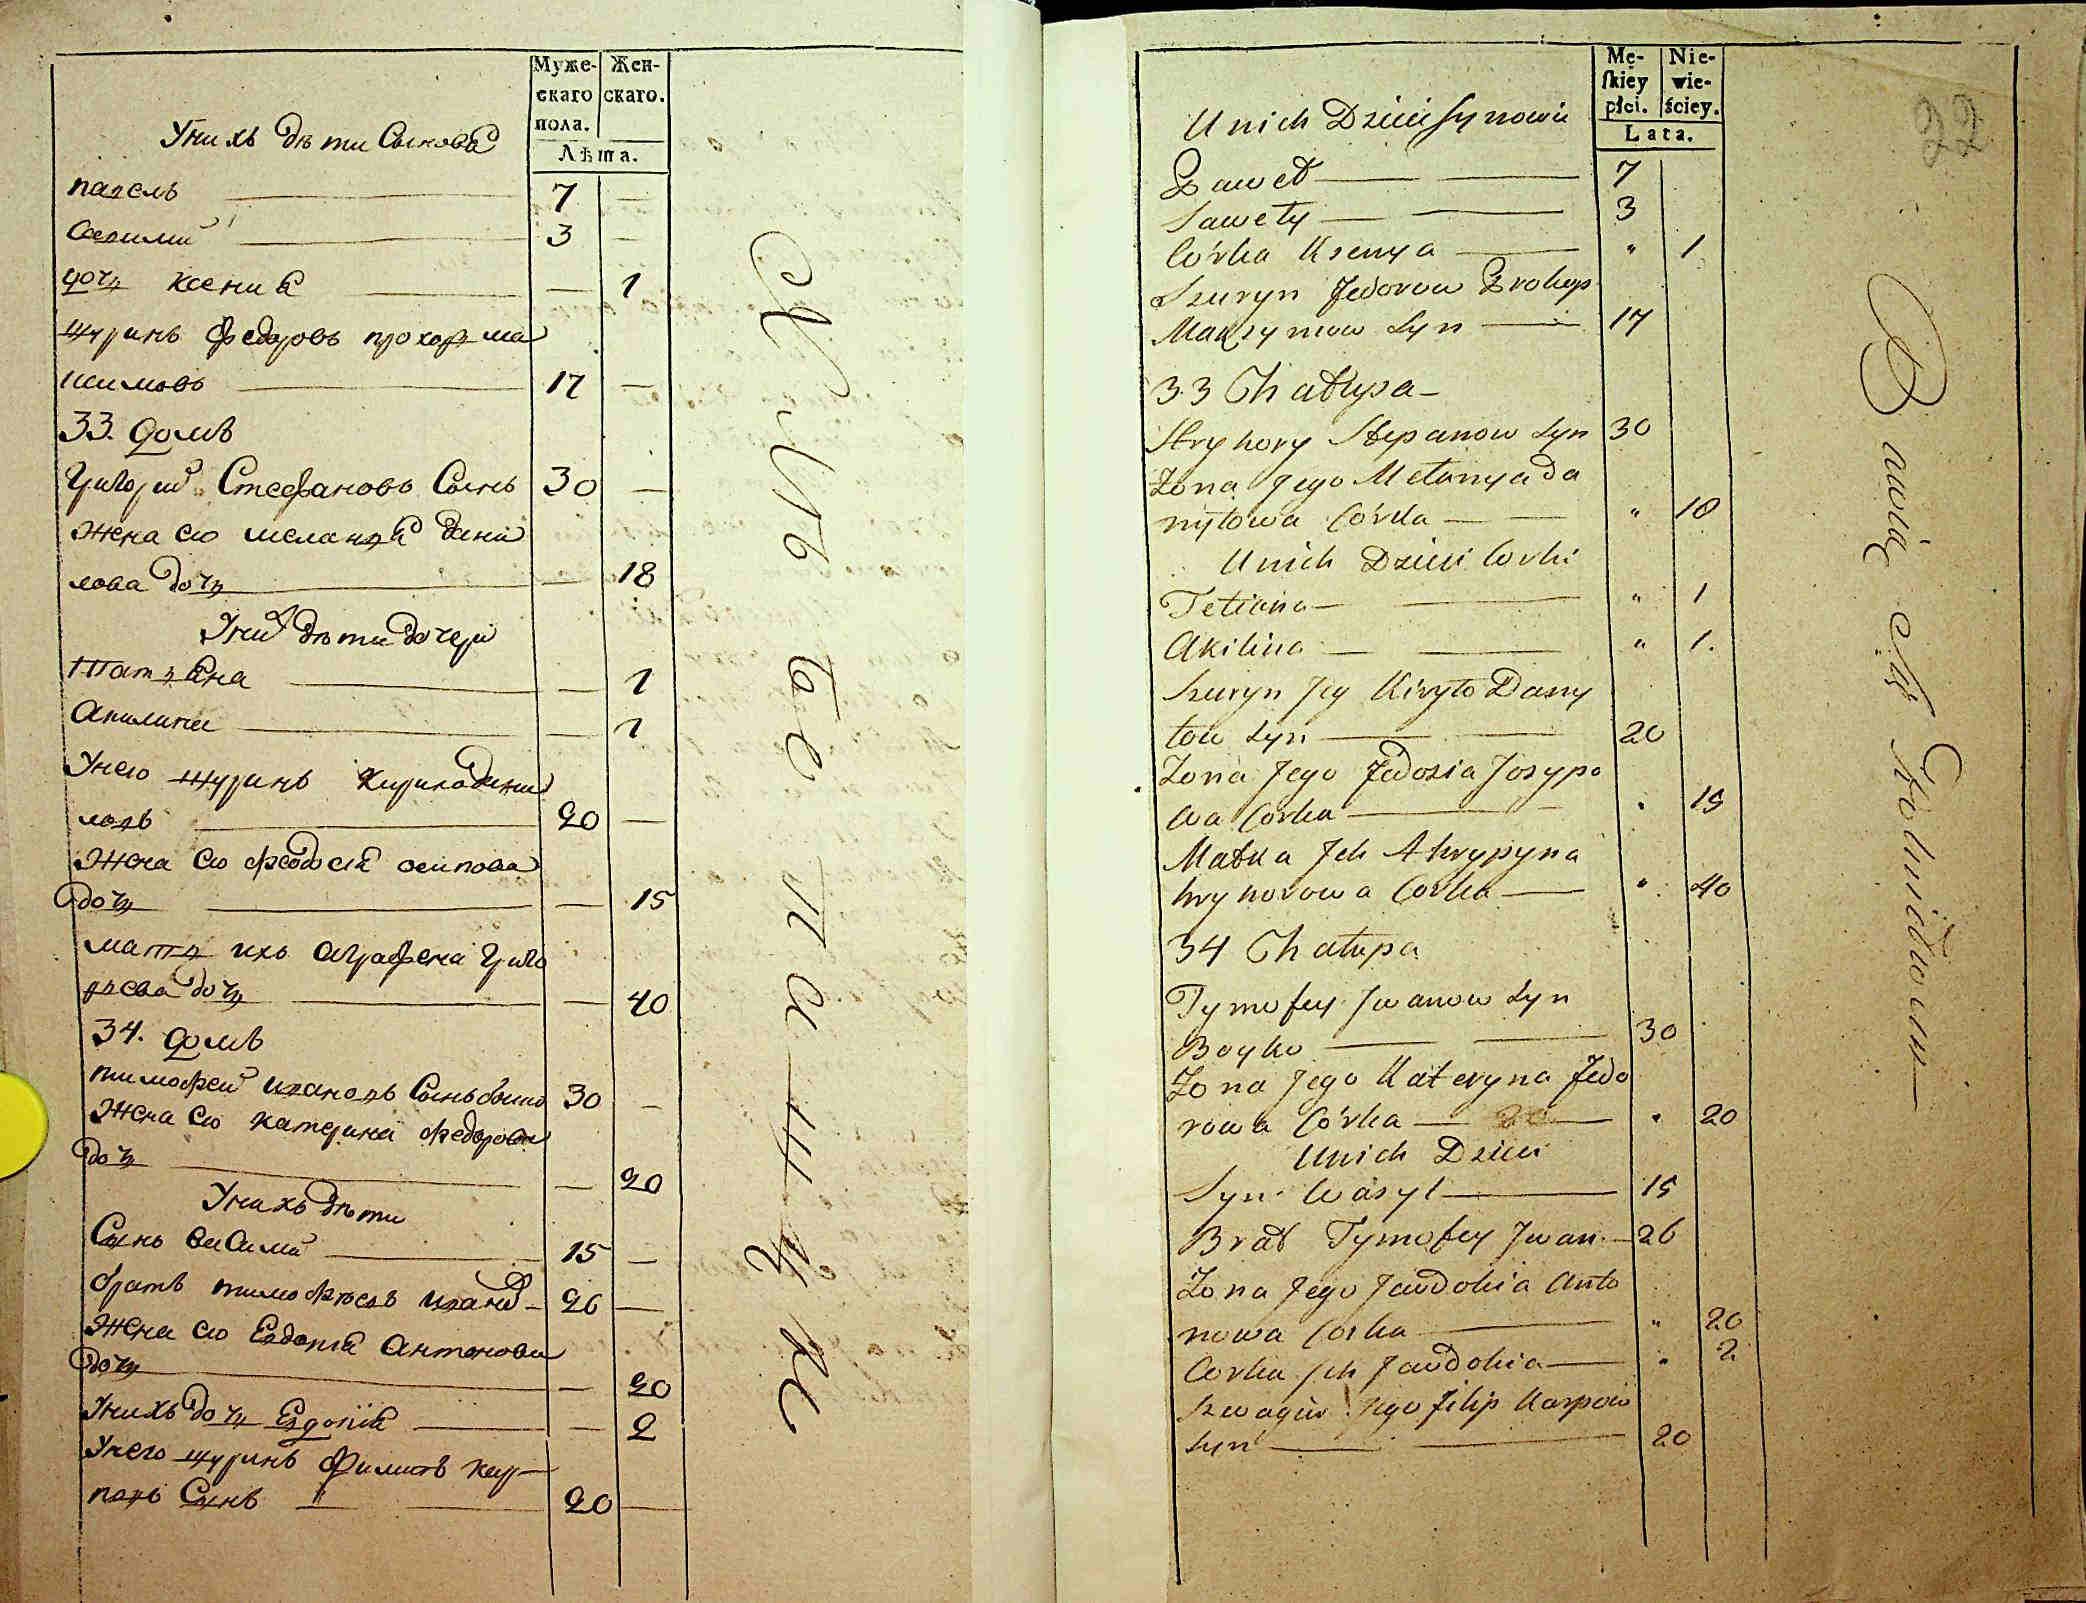 Муже-
скаго
пола.
Жен-
скаго.
Лѣта.
У нихъ дѣти Сынова
павелъ 7 —
Савелий 3 —
дочъ ксения — 1
шуринъ федоровъ прохоръ ма
ксимовъ 17 —
33. домъ
Григорий Стефановъ Сынъ 30 —
жена его меланъя дани
лова дочъ — 18
У них дѣти дочери
Татъяна — 1
Акилина — 1
У него шуринъ кирила дани
ловъ 20 —
жена его феодосия осипова
дочъ — 15
матъ ихъ аграфена Григо
рьева дочъ — 40
34. домъ
тимофей ивановъ Сынъ бойко 30 —
жена его катерина федорова
дочъ — 20
У нихъ дѣти
Сынъ 15 —
братъ тимофѣевъ иванъ — 26 —
жена его Евдокия Антонова
дочъ — 20
У нихъ дочъ Евдокия — 2
У него шуринъ Филипъ кар-
повъ Сынъ 20 —
Mę-
skiey
płci.
Nie-
wie-
ściey.
Lata.
22
U nich Dzieci synowie
Paweł 7
Sawety 3
Córka Ksenya " 1
Szuryn Fedorow Prokop
Maxymow Syn 17
33 Chałupa —
Hryhory Stepanow Syn 30
Żona Jego Melanya Da
nyłowa Córka " 18
U nich Dzieci Corki
Tetiana " 1
Akilina " 1.
Szuryn Jeg Kiryło Dany
łow Syn 20
Żona Jego Fedosia Josypo
wa Corka " 15
Matka Jch Ahrypyna
hryhorowa Corka " 40
34 Chałupa
Tymofey Jwanow Syn
Boyko 30
Żona Jego Kateryna Fedo
rowa Córka " 20
U nich Dzieci
Syn Wasyl 15
Brat Tymofey Jwan — 26
Żona Jego Jawdokia Anto
nowa Corka " 20
Corka Jch Jawdokia " 2
Szwagier Jego Filip Karpow
Syn 20